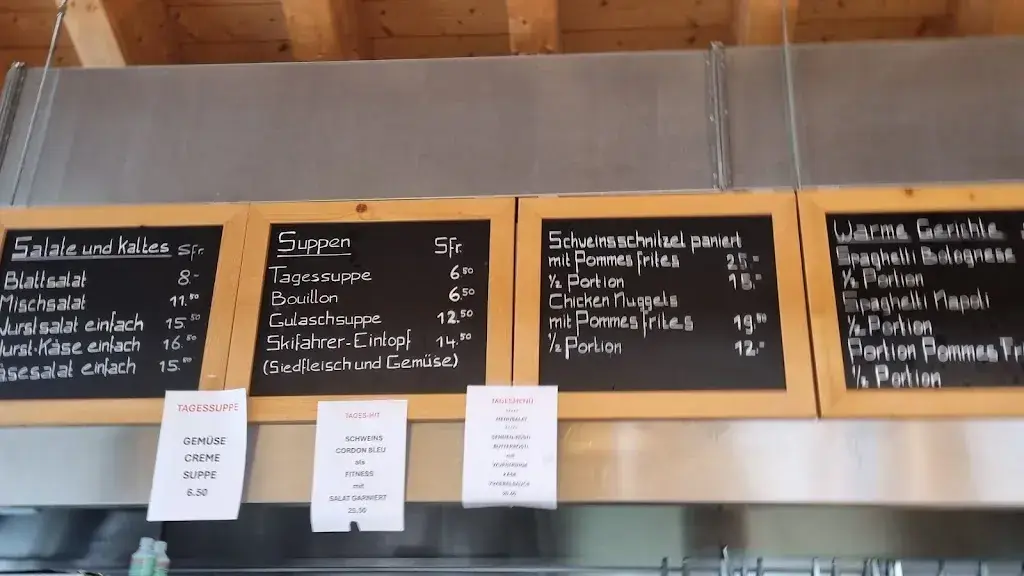 Salate und Kaltes Sfr.
Blattsalat 8.-
Mischsalat 11.50
Wurstsalat einfach 15.50
Wurst-Käse einfach 16.50
Käsesalat einfach 15.50
Suppen Sfr.
Tagessuppe 6.50
Bouillon 6.50
Gulaschsuppe 12.50
Skifahrer-Eintopf 14.50
(Siedfleisch und Gemüse)
Schweinsschnitzel paniert
mit Pommes frites 25.-
1/2 Portion 15.-
Chicken Nuggets
mit Pommes frites 19.50
1/2 Portion 12.-
Warme Gerichte
Spaghetti Bolognese
1/2 Portion
Spaghetti Napoli
1/2 Portion
Portion Pommes Fri
1/2 Portion
TAGESSUPPE
GEMÜSE
CREME
SUPPE
6.50
TAGES-HIT
SCHWEINS
CORDON BLEU
als
FITNESS
mit
SALAT GARNIERT
25.50
TAGESMENÜ
MENUSALAT